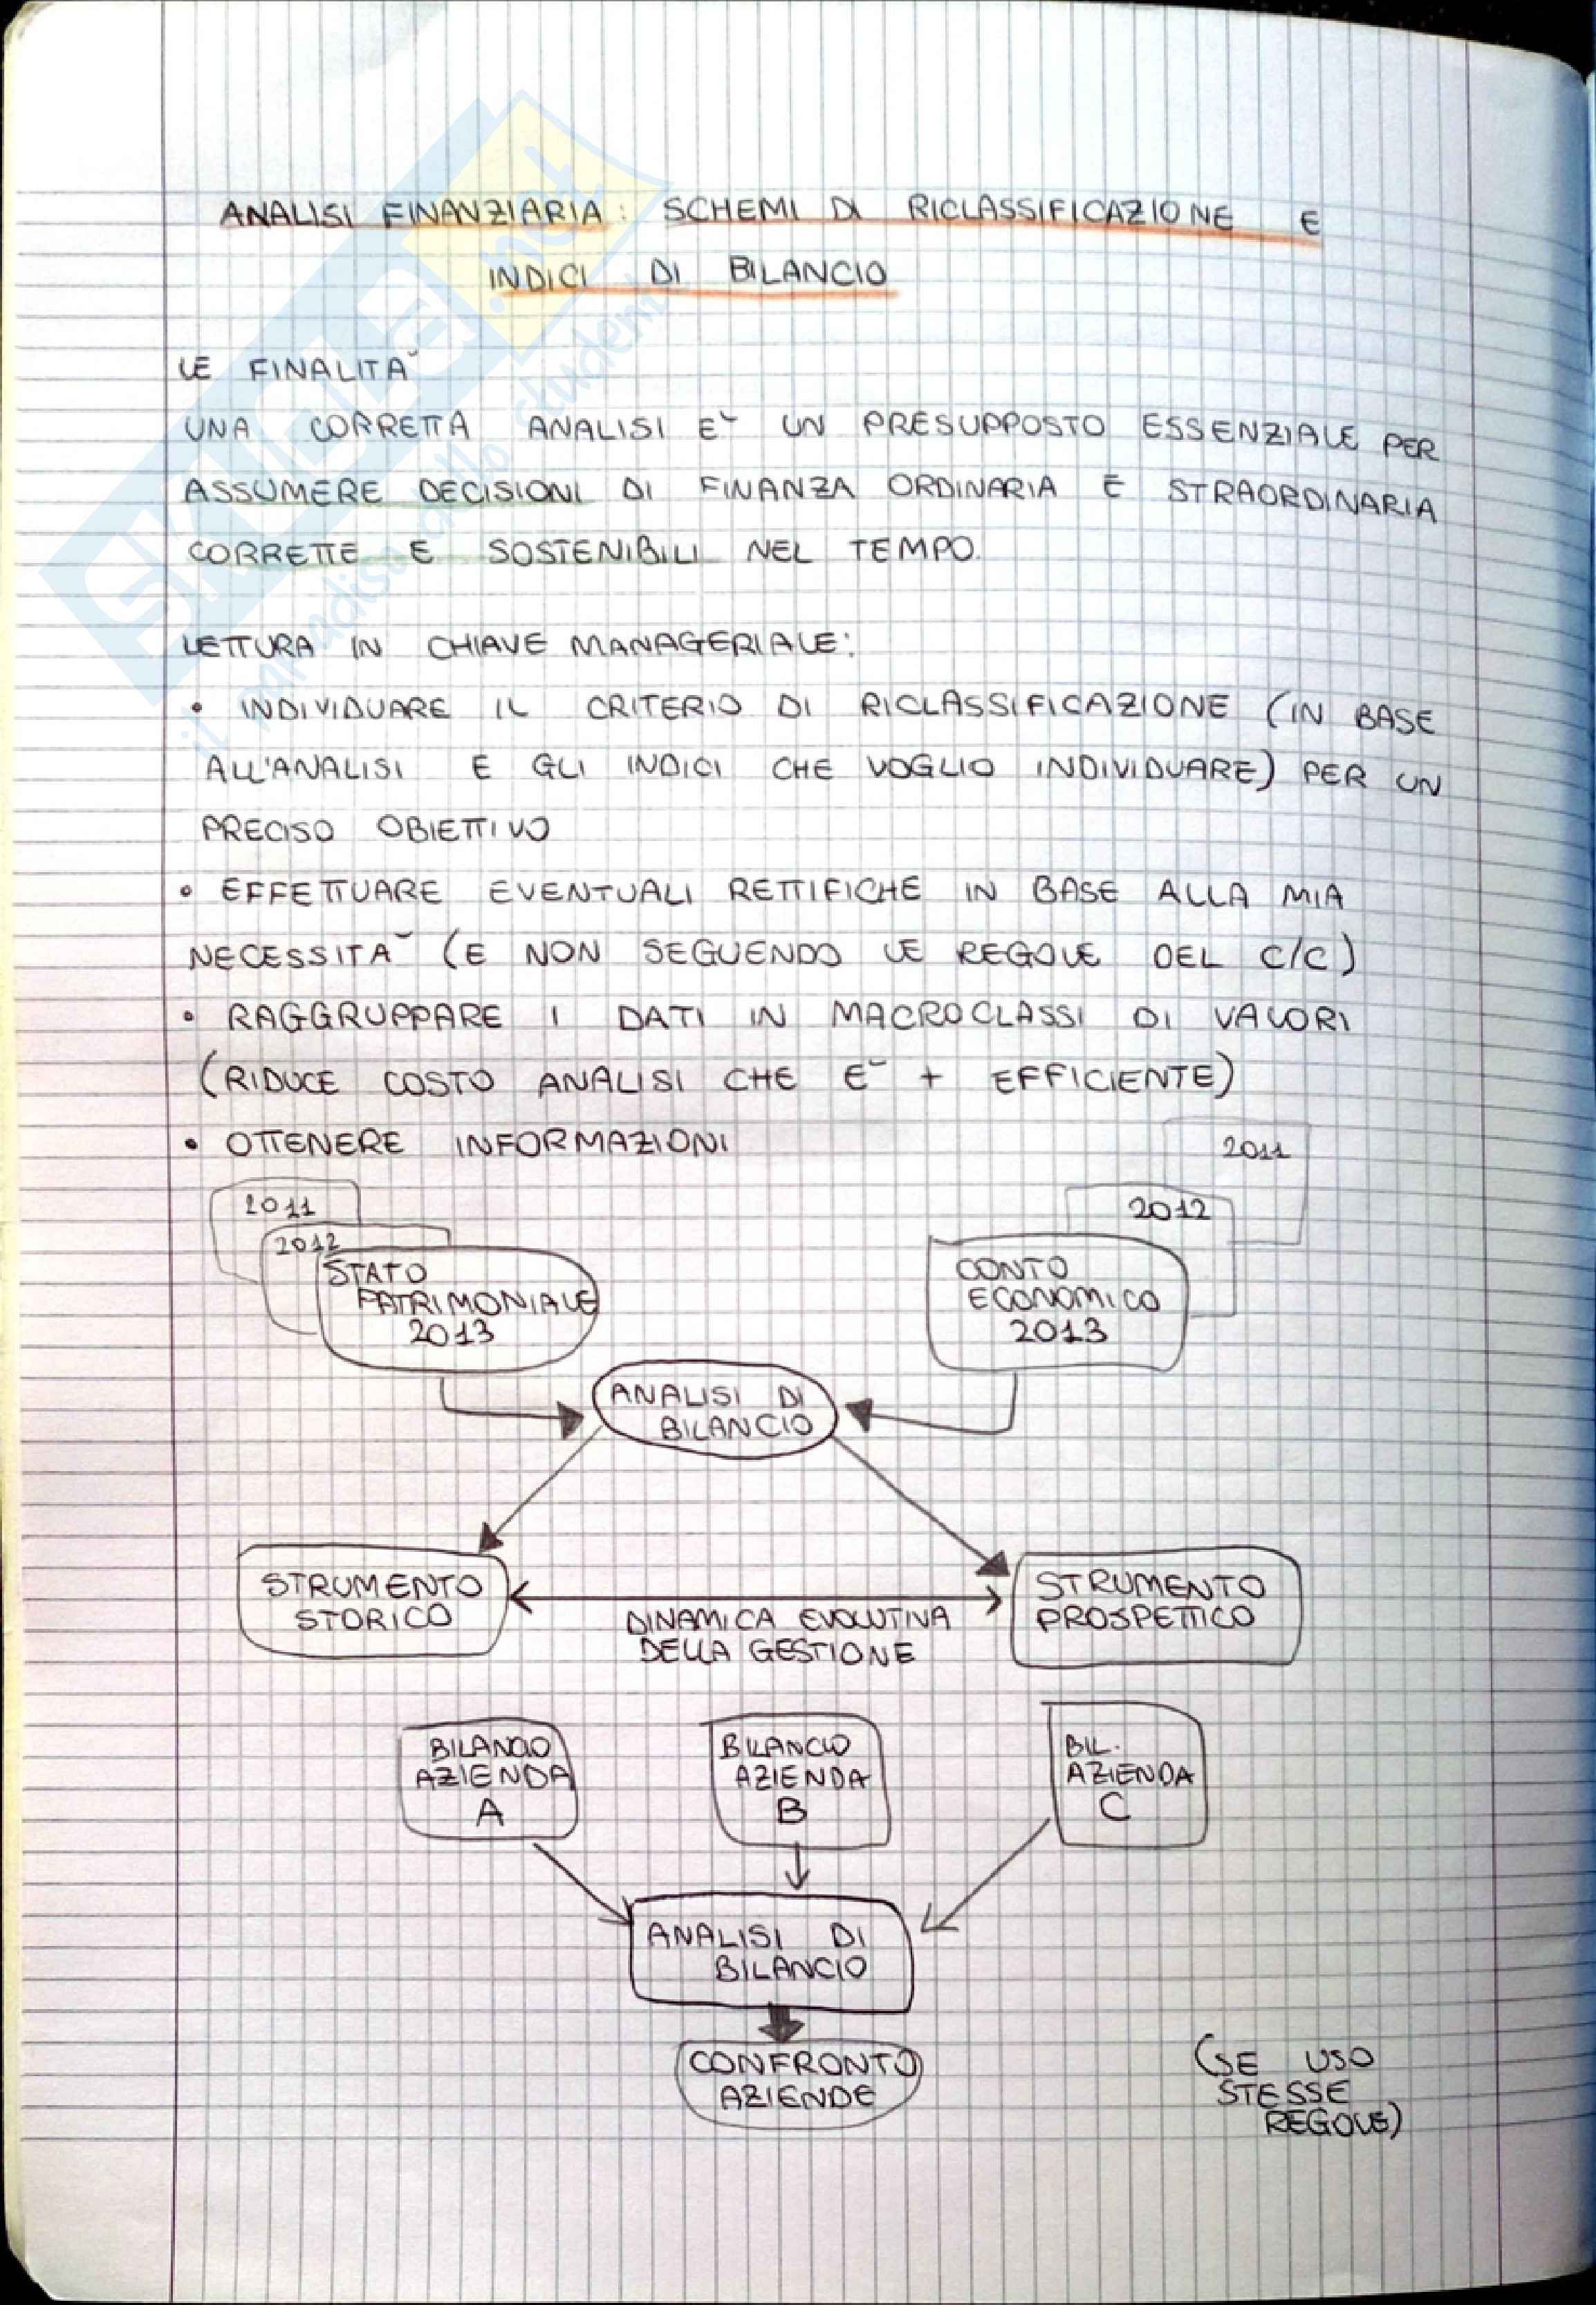 ANALISI FINANZIARIA: SCHEMI DI RICLASSIFICAZIONE E
INDICI DI BILANCIO
LE FINALITA`
UNA CORRETTA ANALISI E` UN PRESUPPOSTO ESSENZIALE PER
ASSUMERE DECISIONI DI FINANZA ORDINARIA E STRAORDINARIA
CORRETTE E SOSTENIBILI NEL TEMPO.
LETTURA IN CHIAVE MANAGERIALE:
• INDIVIDUARE IL CRITERIO DI RICLASSIFICAZIONE (IN BASE
ALL'ANALISI E GLI INDICI CHE VOGLIO INDIVIDUARE) PER UN
PRECISO OBIETTIVO
• EFFETTUARE EVENTUALI RETTIFICHE IN BASE ALLA MIA
NECESSITA` (E NON SEGUENDO LE REGOLE DEL C/C)
• RAGGRUPPARE I DATI IN MACROCLASSI DI VALORI
(RIDUCE COSTO ANALISI CHE E` + EFFICIENTE)
• OTTENERE INFORMAZIONI
2011
2012
STATO
PATRIMONIALE
2013
2011
2012
CONTO
ECONOMICO
2013
ANALISI DI
BILANCIO
STRUMENTO
STORICO
DINAMICA EVOLUTIVA
DELLA GESTIONE
STRUMENTO
PROSPETTICO
BILANCIO
AZIENDA
A
BILANCIO
AZIENDA
B
BIL.
AZIENDA
C
ANALISI DI
BILANCIO
CONFRONTO
AZIENDE
(SE USO
STESSE
REGOLE)
SKUOLA.net
il paradiso dello studente